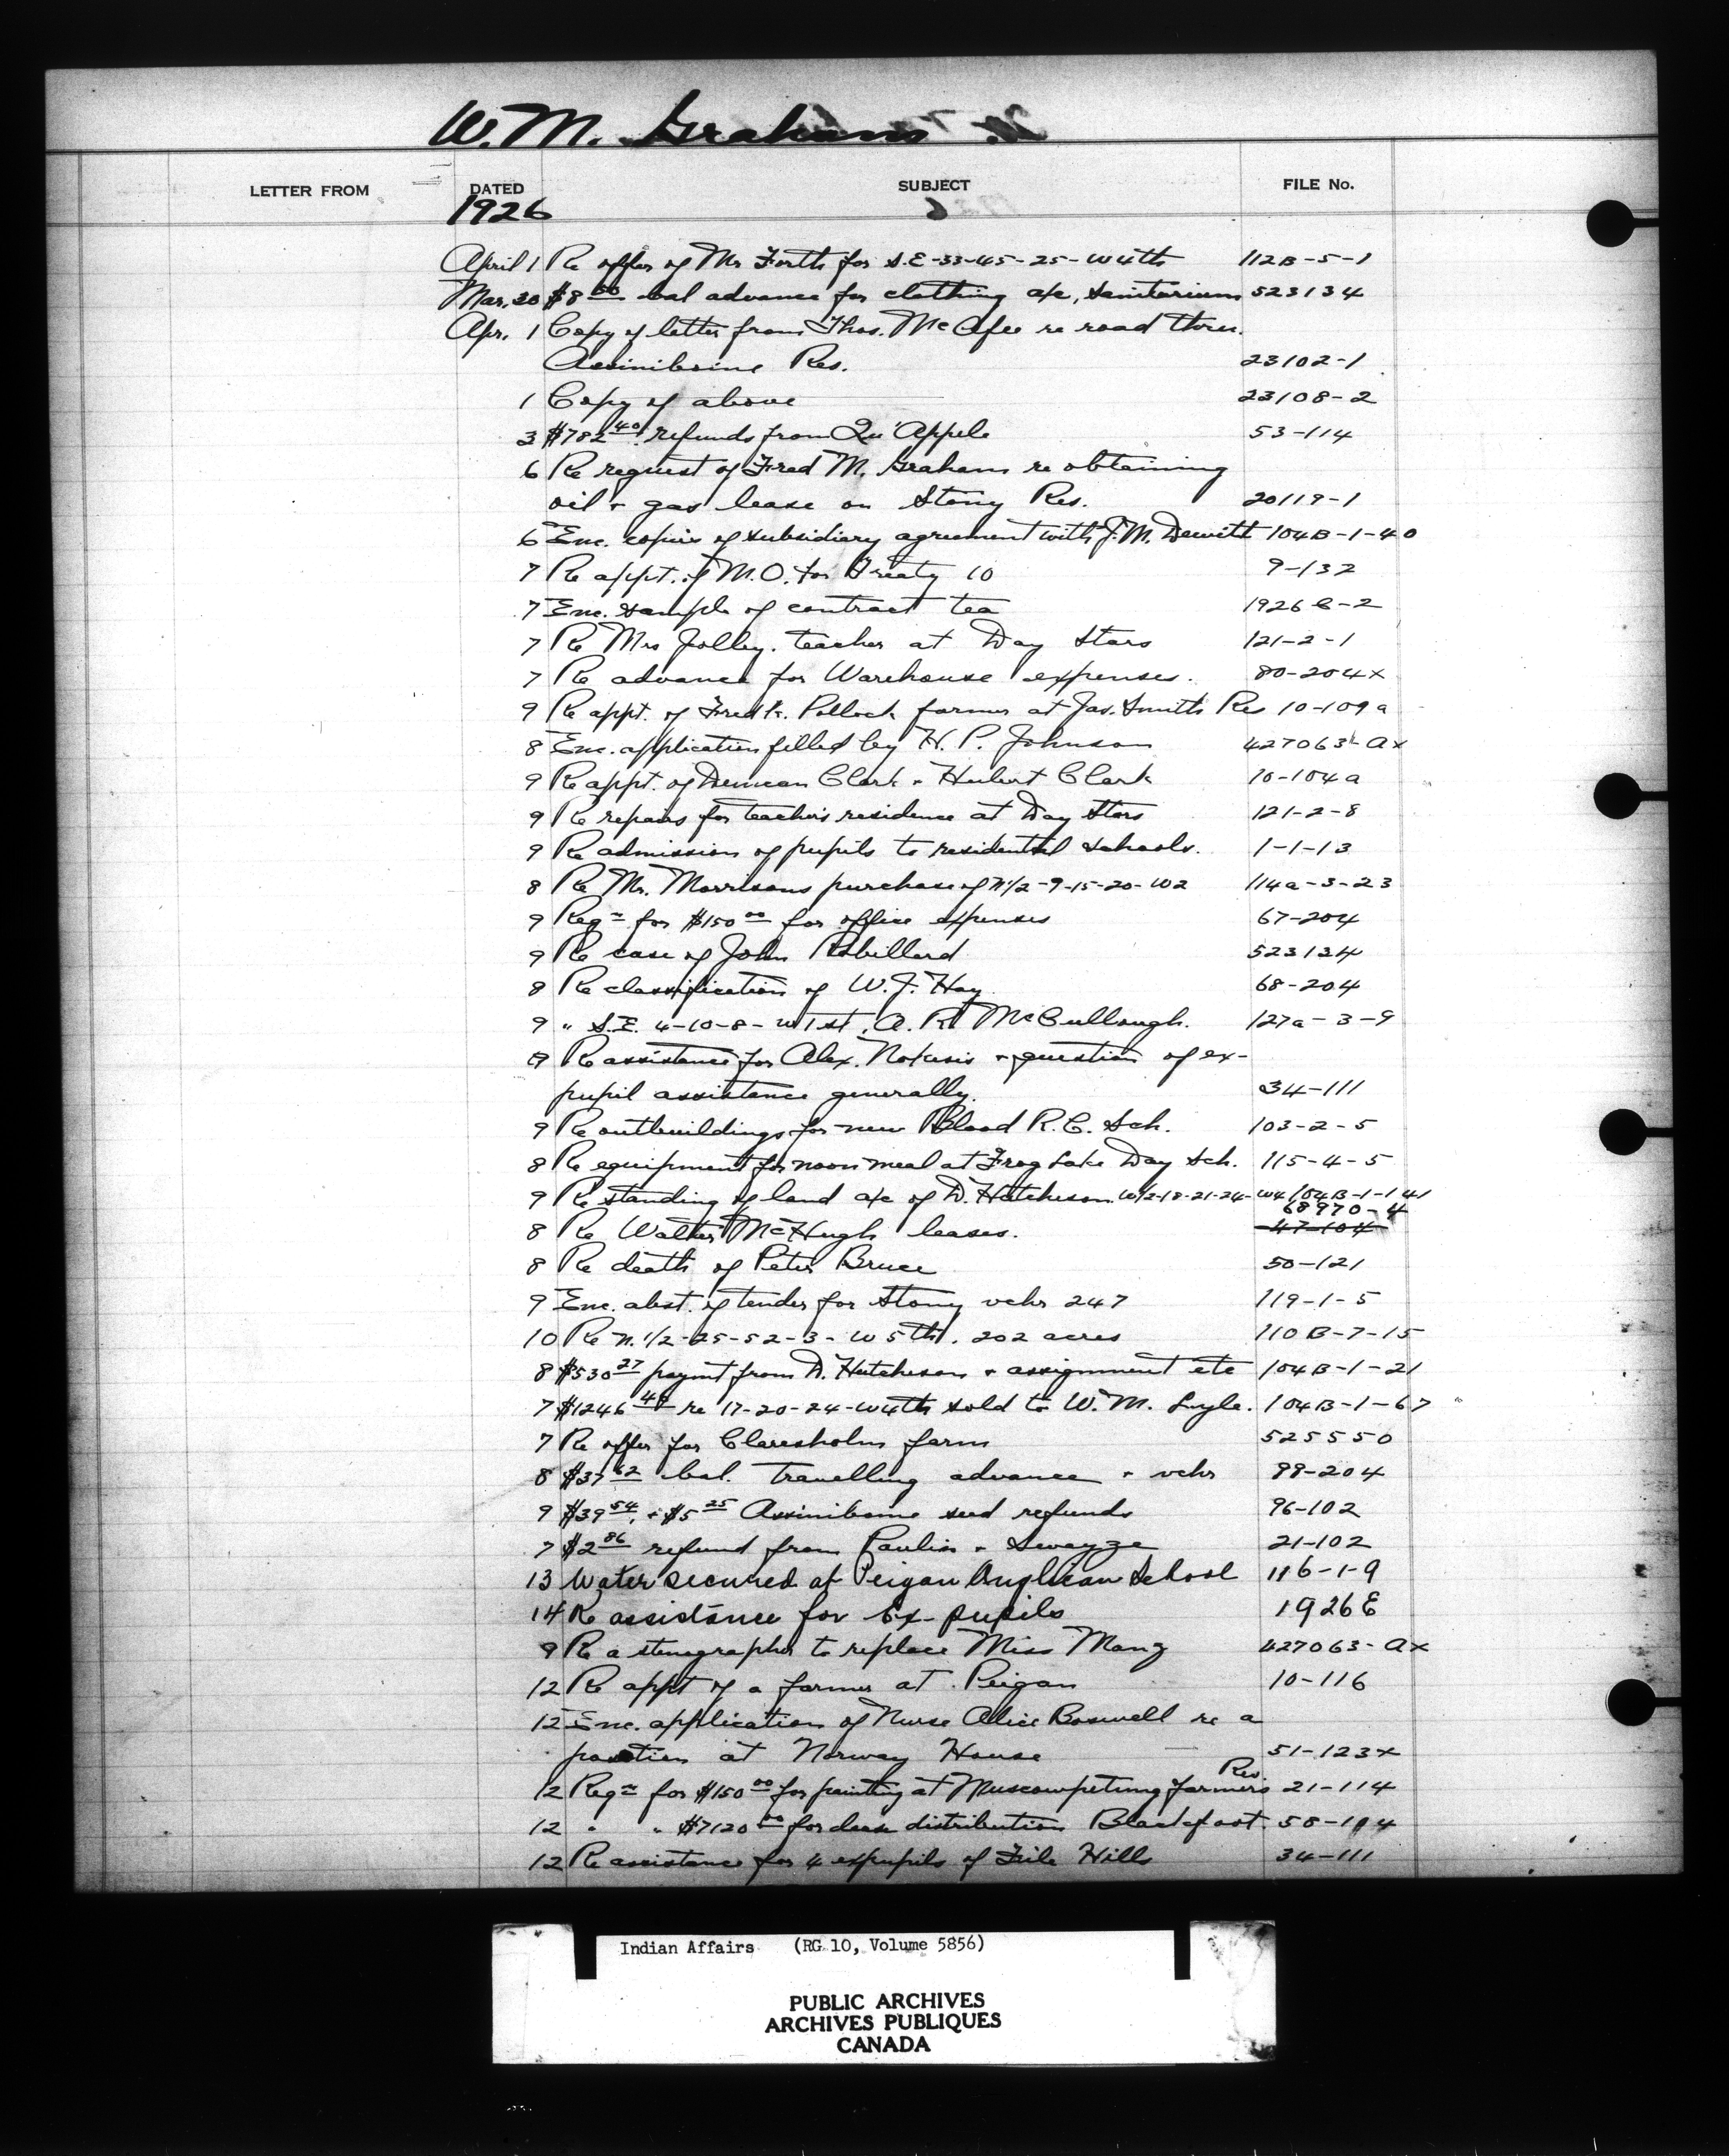 W. M. Graham
LETTER FROM DATED SUBJECT FILE No.
1926
April 1 Re offer of Mr Forth for S.E-33-45-25-W4th 112B-5-1
Mar. 30 $8 50 bal advance for clothing a/c, Sanitarium 523134
Apr. 1 Copy of letter from Thos. McAfee re road thru.
Assiniboine Res. 23102-1
1 Copy of above 23108-2
3 $782 40 refunds from Qu'Appele 53-114
6 Re request of Fred M. Graham re obtaining
oil + gas lease on Stony Res. 20119-1
6 Enc. copies of subsidiary agreement with J.M. Dewitt 104B-1-40
7 Re appt. of M.O. for Treaty 10 9-132
7 Enc. sample of contract tea 1926 C-2
7 Re Mrs Jolley. teacher at Day Stars 121-2-1
7 Re advance for Warehouse expenses. 80-204x
9 Re appt. of Fredk. Pollock farmer at Jas. Smith Res 10-109a
8 Enc. application filled by H. P. Johnson 427063-ax
9 Re appt. of Duncan Clark + Hubert Clark 10-104a
9 Re repairs for teachers residence at Day Stars 121-2-8
9 Re admission of pupils to residential schools. 1-1-13
8 Re Mr. Morrisons purchase of N1/2-9-15-20-W2 114a-3-23
9 Reqn for $150 00 for office expenses 67-204
9 Re case of John Robillard 523134
8 Re classification of W. J. Hay 68-204
9 " S.E. 4-10-8-W1st, A. R. McCullough. 127a-3-9
9 Re assistance for Alex. Nokusis + question of ex-
pupil assistance generally. 34-111
9 Re outbuildings for new Blood R.C. Sch. 103-2-5
8 Re equipment for noon meal at Frog Lake Day Sch. 115-4-5
9 Re standing of land a/c of D. Hutcheson W1/2-18-21-24-W4 104B-1-141
68970-4
8 Re Walter McHugh leases. 47-104
8 Re death of Peter Bruce 50-121
9 Enc. abst. of tender for Stony vchr 247 119-1-5
10 Re N.1/2-25-52-3-W5th. 202 acres 110B-7-15
8 $530 27 paymt from D. Hutcheson + assignment etc 104B-1-21
7 $1246 40 re 17-20-24-W4th sold to W. M. Lyle. 104B-1-67
7 Re offer for Claresholm farm 525550
8 $37 62 bal. travelling advance + vchr 99-204
9 $39 54 + $5 25 Assiniboine seed refunds 96-102
7 $2 86 refund from Paulin + Swayze 21-102
13 Water secured at Peigan Anglican School 116-1-9
14 Re assistance for Ex-pupils 1926E
9 Re a stenographer to replace Miss Mang 427063-ax
12 Re appt of a farmer at Peigan 10-116
12 Enc. application of Nurse Alice Boswell re a
position at Norway House 51-123x
Res
12 Reqn for $150 00 for painting at Muscowpetung farmer's 21-114
12 " " $7120 00 for cash distribution Blackfoot 58-104
12 Re assistance for 4 expupils of File Hills 34-111
Indian Affairs (RG 10, Volume 5856)
PUBLIC ARCHIVES
ARCHIVES PUBLIQUES
CANADA